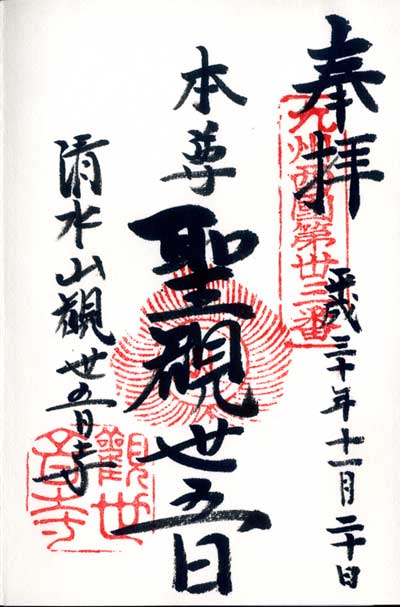 奉拝
九州西國第丗三番
平成三十年十一月二十日
本尊
聖観世音
清水山観世音寺
觀世音寺